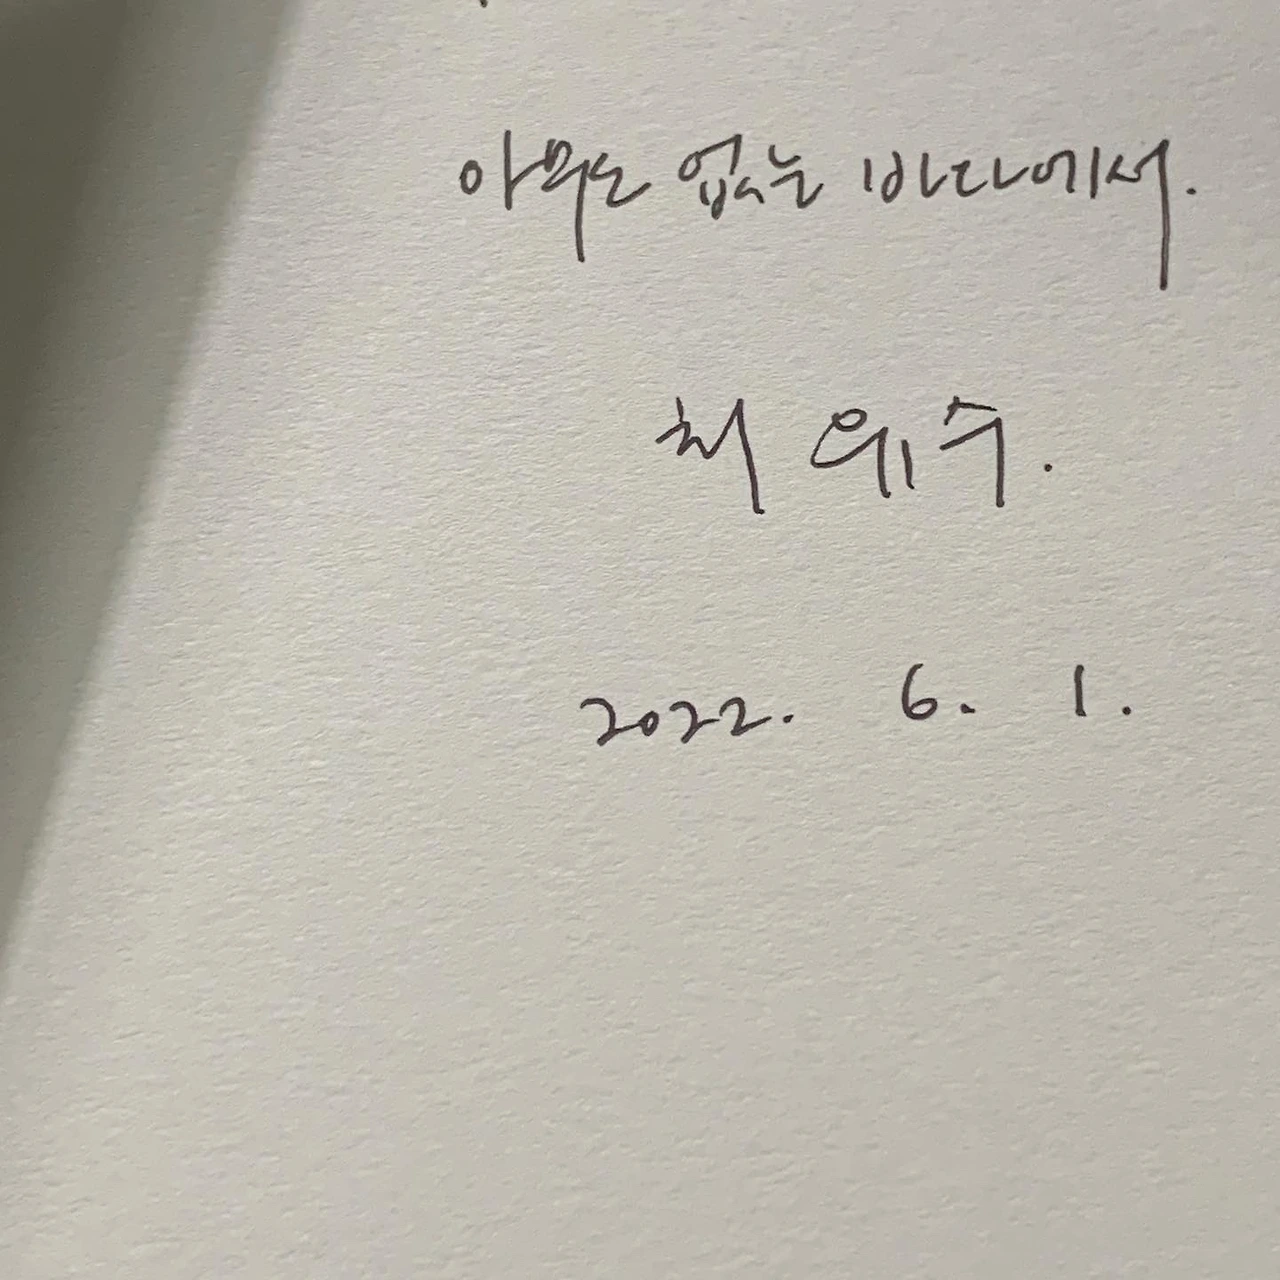 아무도 없는 바다에서.
최유수.
2022. 6. 1.